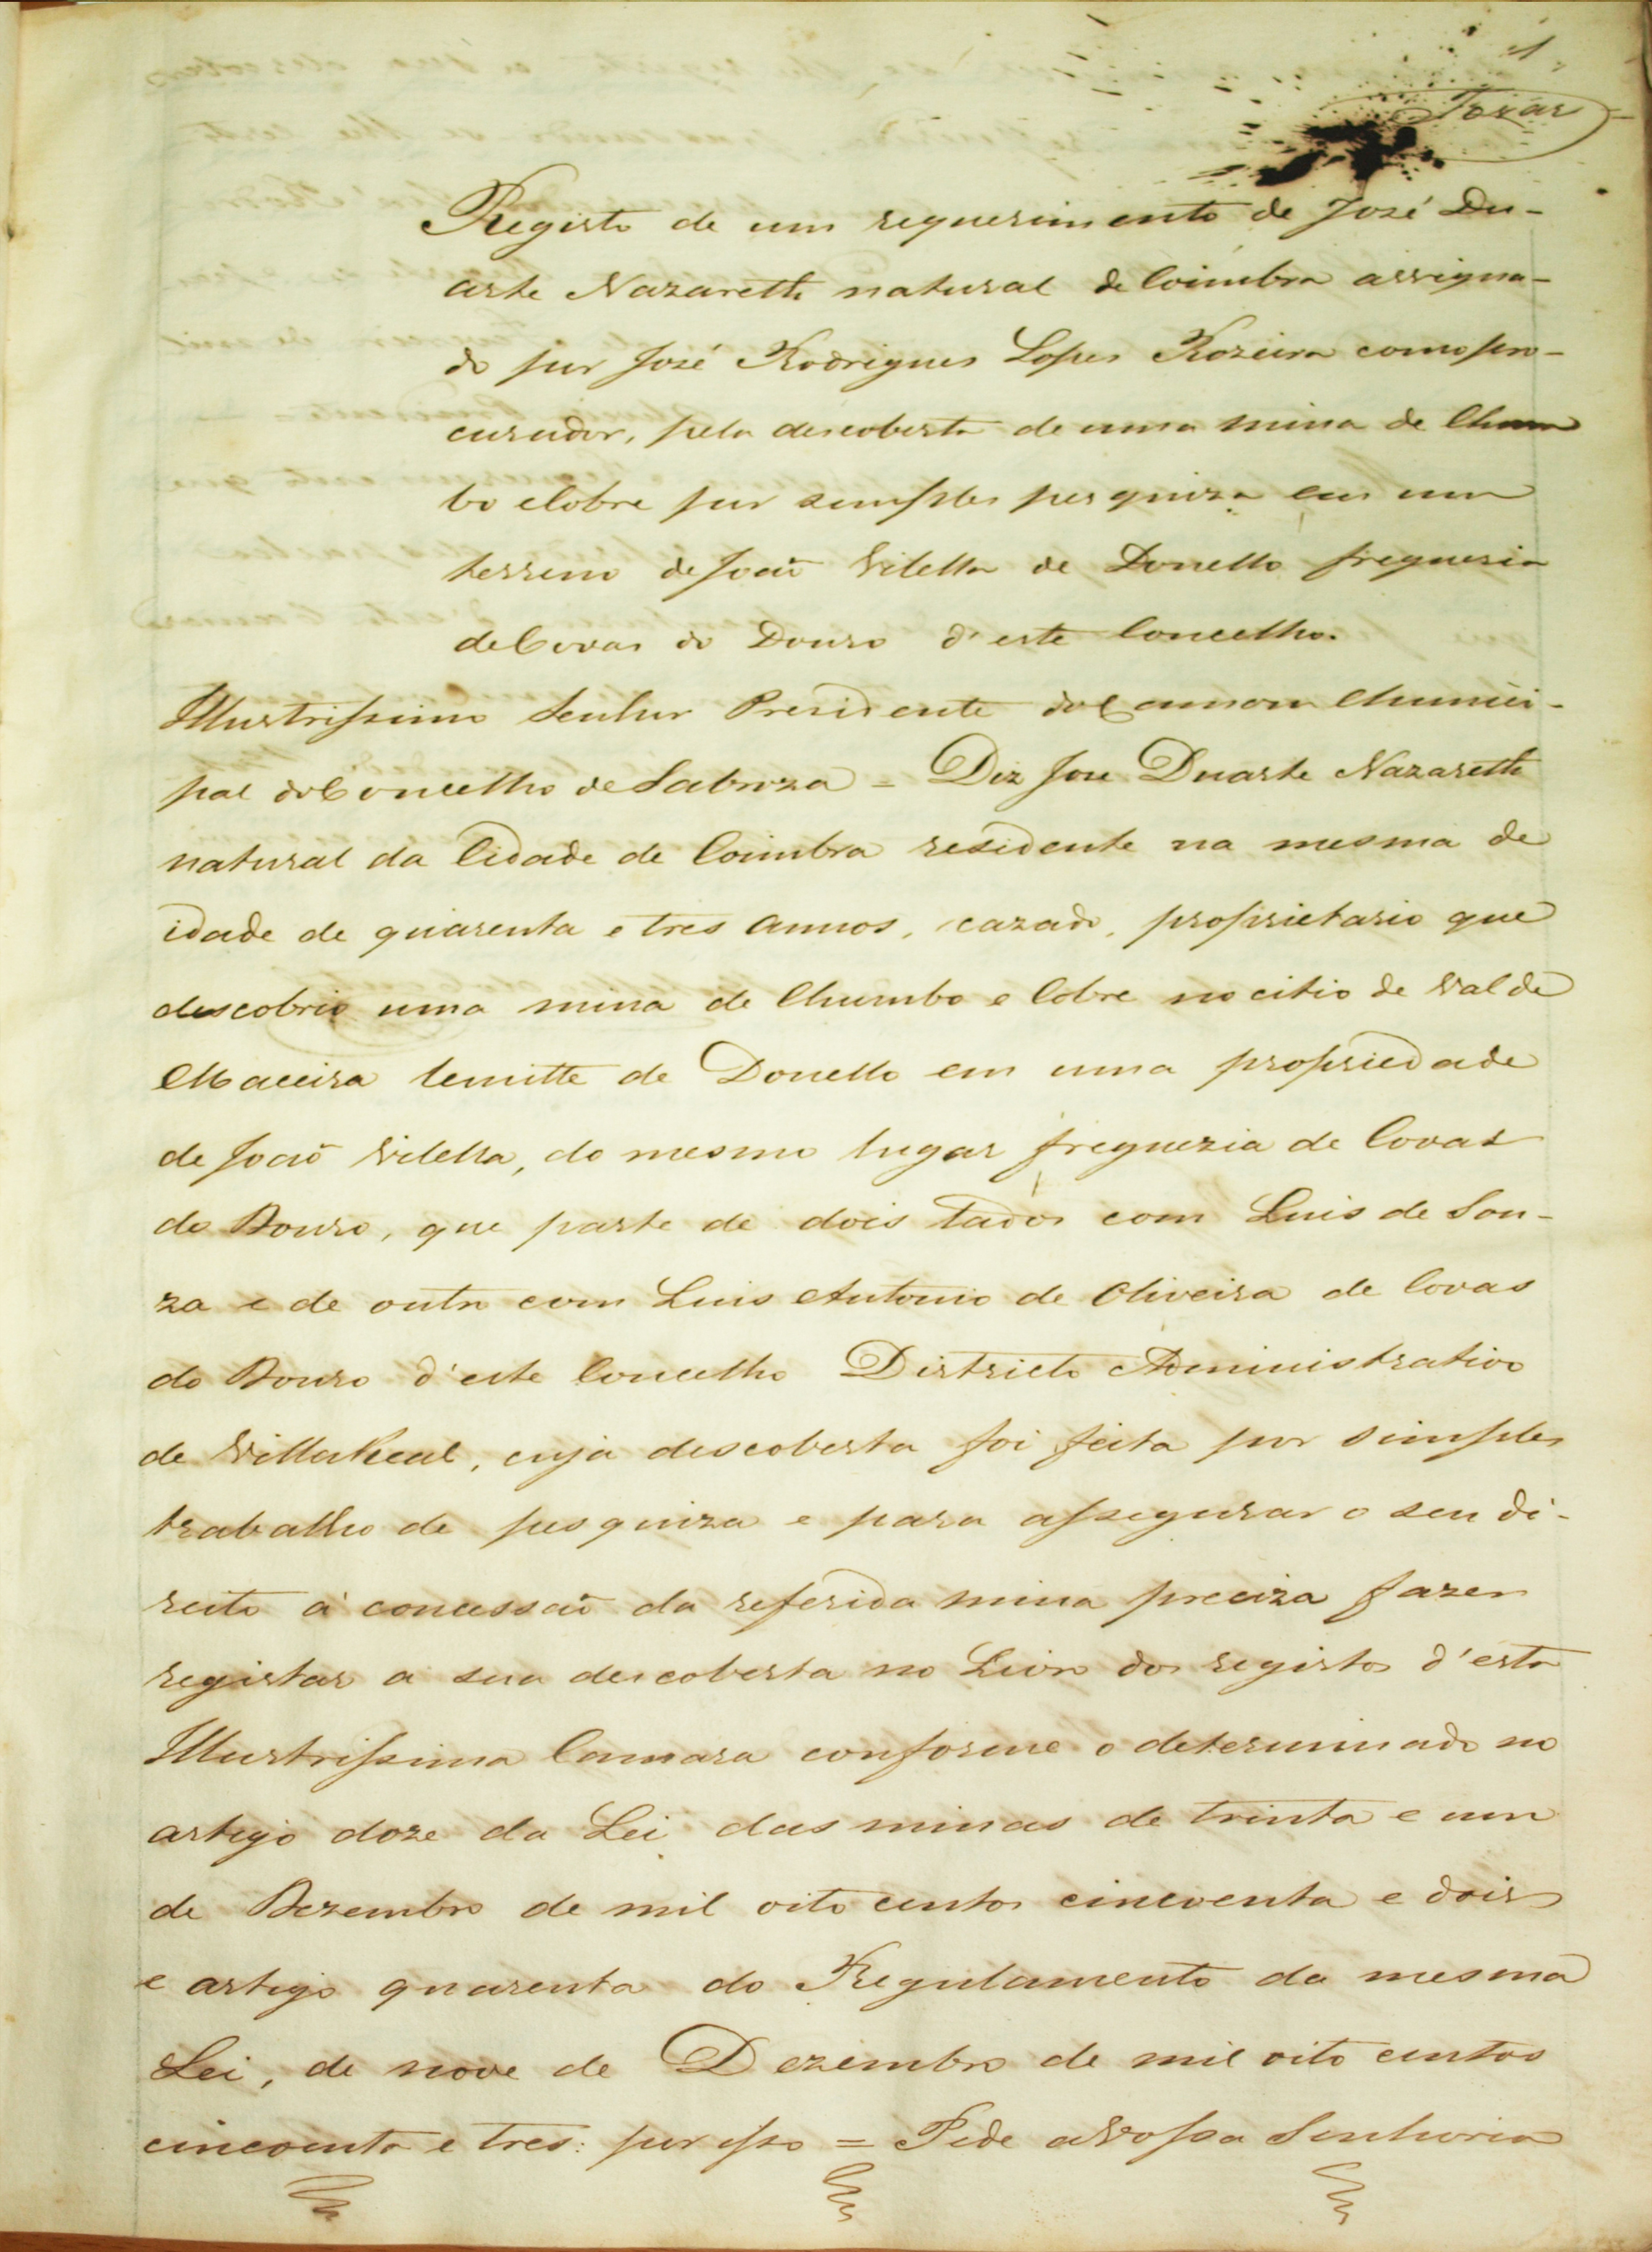 1
Tovar
Registo de um requerimento de José Du-
arte Nazareth natural de Coimbra assigna-
do por José Rodrigues Lopes Rozeira como pro-
curador, pela descoberta de uma mina de Chum
bo e Cobre por simples pesquiza em um
terreno de João Vilella de Donello freguesia
de Covas do Douro d'este Concelho.
Illustrissimo Senhor Presidente da Camara Munici-
pal do Concelho de Sabroza = Diz Jose Duarte Nazareth
natural da Cidade de Coimbra residente na mesma de
idade de quarenta e tres annos, cazado, proprietario que
descobrio uma mina de Chumbo e Cobre no citio de Val de
Maceira lemitte de Donello em uma propriedade
de João Vilella, do mesmo lugar freguezia de Covas
do Douro, que parte de dois lados com Luis de Sou-
za e de outro com Luis Antonio de Oliveira de Covas
do Douro d'este Concelho Districto Administrativo
de Villa Real, cuja descoberta foi feita por simples
trabalho de pesquiza e para assegurar o seu di-
reito á concessão da referida mina preciza fazer
registar a sua descoberta no Livro dos registos d'esta
Illustrissima Camara conforme o determinado no
artigo doze da Lei das minas de trinta e um
de Dezembro de mil oito centos cincoenta e dois
e artigo quarenta do Regulamento da mesma
Lei, de nove de Dezembro de mil oito centos
cincoenta e tres: por isso = Pede a Vossa Senhoria